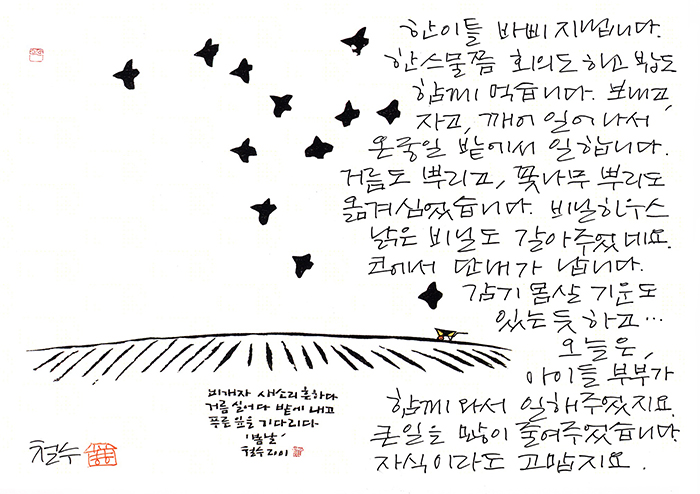 한 이틀 바삐 지냅니다.
한 스물쯤 회의도 하고 밥도
함께 먹습니다. 보내고,
자고, 깨어 일어나서,
온종일 밭에서 일합니다.
거름도 뿌리고, 꽃나무 뿌리도
옮겨심었습니다. 비닐하우스
낡은 비닐도 갈아주었네요.
코에서 단내가 납니다.
감기 몸살 기운도
있는 듯하고...
오늘은,
아이들 부부가
함께 와서 일해주었지요.
큰일을 많이 줄여주었습니다.
자식이라도 고맙지요.
비개자 새소리 흔하다
거름 실어다 밭에 내고
푸른 잎을 기다리다
'봄날'
철수
철수